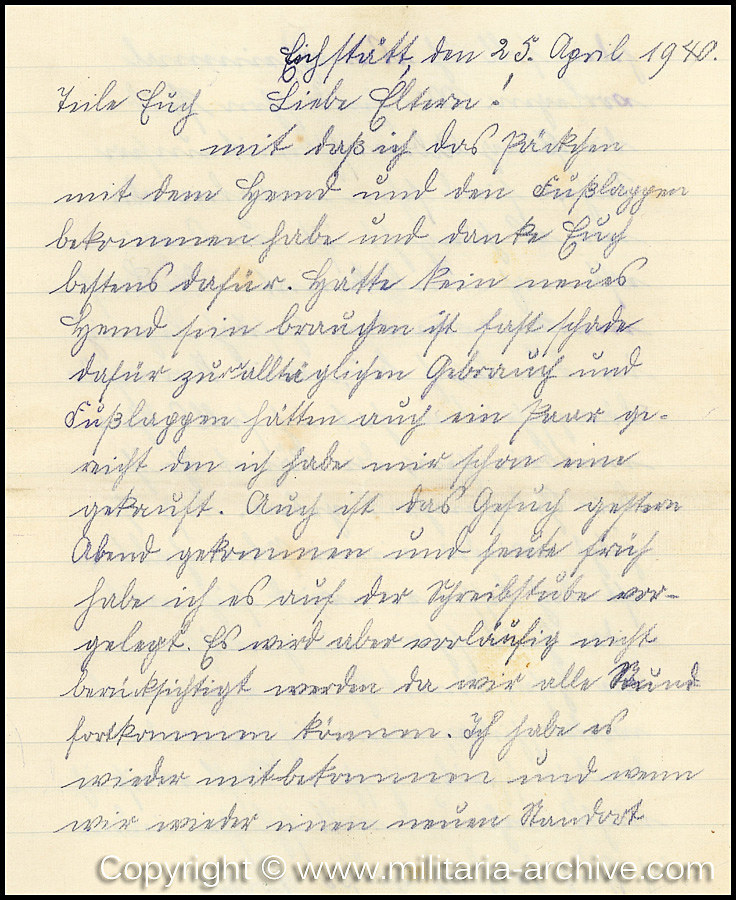 Eichstätt, den 25. April 1940.
Teile Euch Liebe Eltern!
mit daß ich das Päckchen
mit dem Hemd und den Fußlappen
bekommen habe und danke Euch
bestens dafür. Hätte kein neues
Hemd sein brauchen ist fast schade
dafür zur alltäglichen Gebrauch und
Fußlappen hätten auch ein Paar ge-
reicht den ich habe mir schon eine
gekauft. Auch ist das Gesuch gestern
Abend gekommen und heute früh
habe ich es auf der Schreibstube vor-
gelegt. Es wird aber vorläufig nicht
berücksichtigt werden da wir alle Stund
fortkommen können. Ich habe es
wieder mitbekommen und wenn
wir wieder einen neuen Standort
Copyright © www.militaria-archive.com